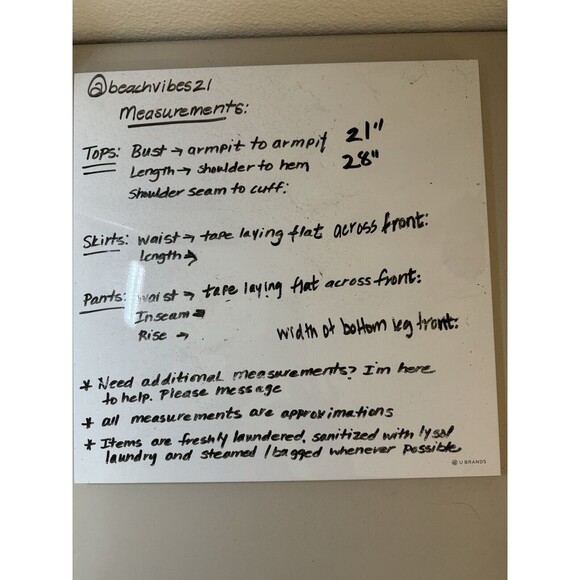 @beachvibes21
Measurements:
Tops: Bust → armpit to armpit 21"
Length → shoulder to hem 28"
Shoulder seam to cuff:
Skirts: waist → tape laying flat across front:
Length →
Pants: waist → tape laying flat across front:
Inseam →
Rise → width of bottom leg front:
* Need additional measurements? I'm here
to help. Please message
* all measurements are approximations
* Items are freshly laundered, sanitized with lysol
laundry and steamed / bagged whenever possible
U BRANDS